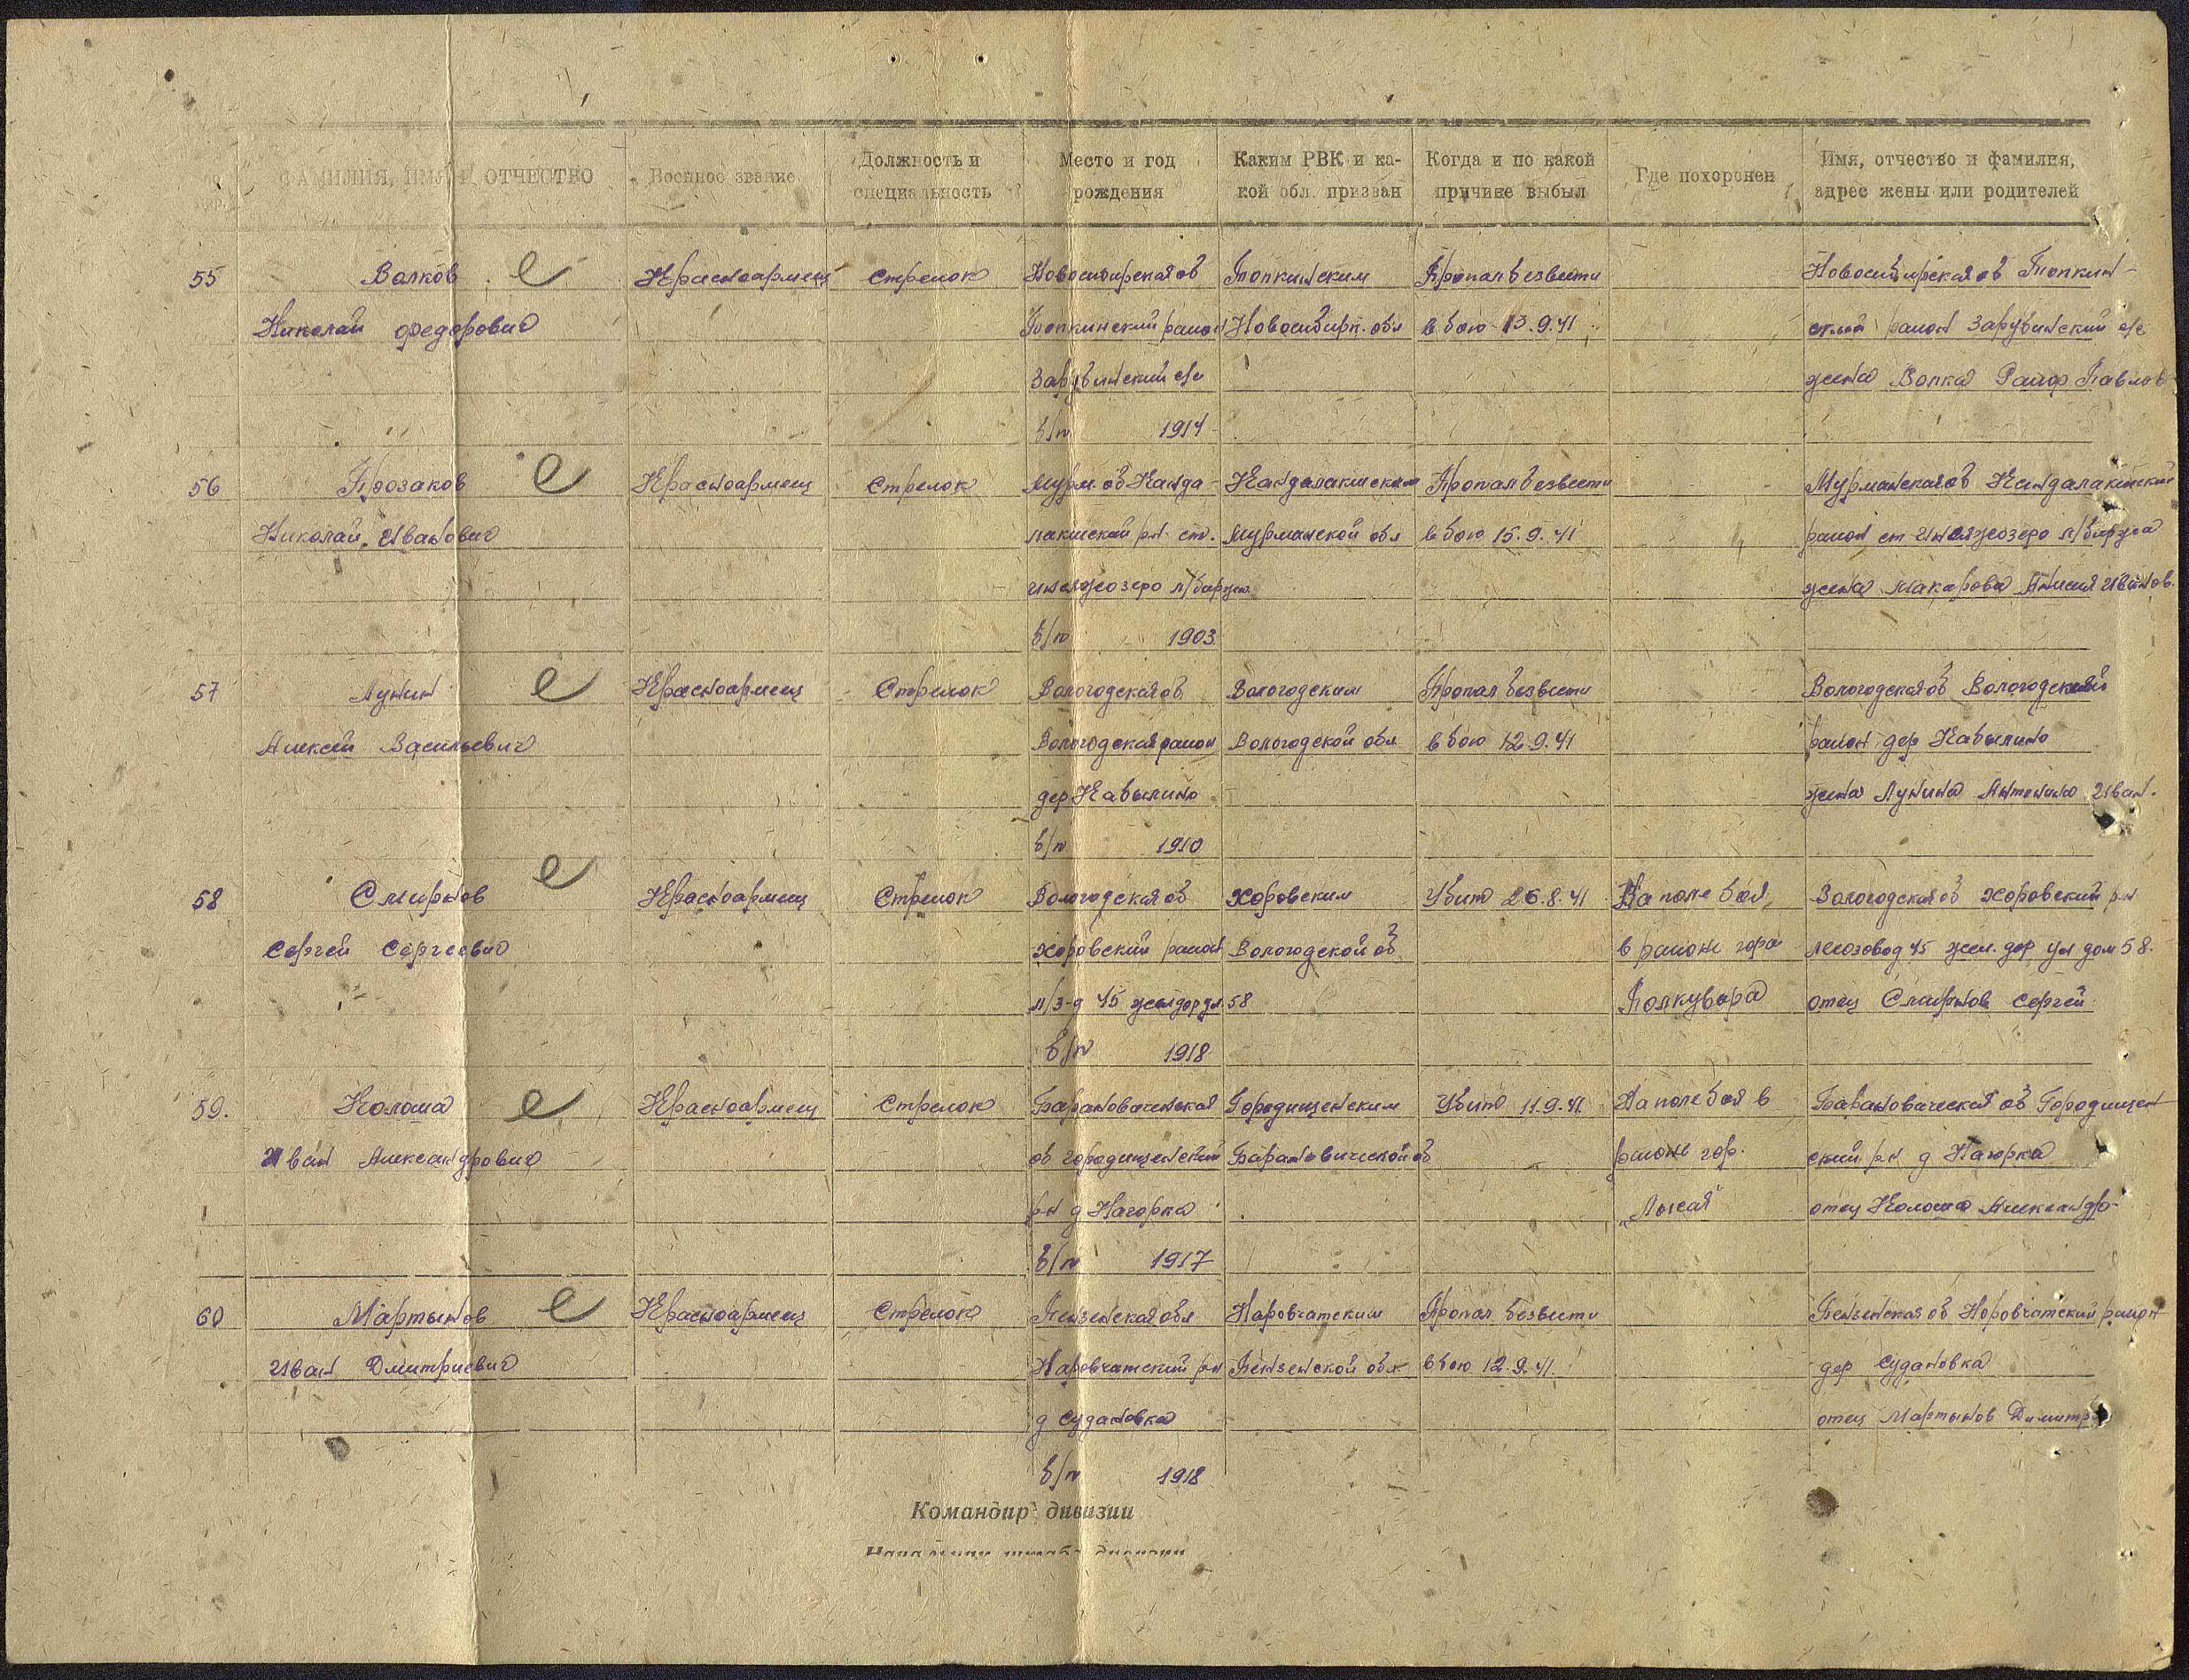 ФАМИЛИЯ, ИМЯ И ОТЧЕСТВО
Военное звание
Должность и специальность
Место и год рождения
Каким РВК и какой обл. призван
Когда и по какой причине выбыл
Где похоронен
Имя, отчество и фамилия, адрес жены или родителей
55 Волков е Красноармеец Стрелок Новосибирская об Топкинским Пропал безвести Новосибирская об Топкин-
Николай Федорович Топкинский район Новосибирк. обл в бою 13.9.41 ский район Зарубинский с/с
Зарубинский с/с жена Волка Раиф Павлов
б/п 1914
56 Прозаков е Красноармеец Стрелок Мурм. об Канда- Кандалакшским Пропал безвести Мурманская об Кандалакшский
Николай Иванович лакшский рн. ст. Мурманской обл в бою 15.9.41 район ст Инсяжозеро л/биржа
Инсяжозеро л/биржа жена Макарова Анисия Иванов.
б/п 1903
57 Лунин е Красноармеец Стрелок Вологодская об Вологодским Пропал безвести Вологодская об Вологодский
Алексей Васильевич Вологодская район Вологодской обл в бою 12.9.41 район дер Кабылино
дер Кабылино жена Лунина Антонина Иван.
б/п 1910
58 Смирнов е Красноармеец Стрелок Вологодская об Харовским Убит 26.8.41 На поле боя, Вологодская об Харовский рн
Сергей Сергеевич Харовский район Вологодской об в районе гора лесозавод 45 жел. дор ул дом 58.
л/з-д 45 желдор ул 58 Полкувара отец Смирнов Сергей
б/п 1918
59. Колоша е Красноармеец Стрелок Барановическая Городищенским Убит 11.9.41 На поле боя в Барановическая об Городищен
Иван Александрович об городищенский Барановической об районе гор. ский рн д Нагорка
рн д Нагорка „Лысая" отец Колоша Александр-
б/п 1917
60 Мартынов е Красноармеец Стрелок Пензенская обл Наровчатским Пропал безвести Пензенская об Норовчатский район
Иван Дмитриевич Наровчатский рн Пензенской обл в бою 12.9.41. дер Судановка
д Судановка отец Мартынов Димитр
б/п 1918
Командир дивизии